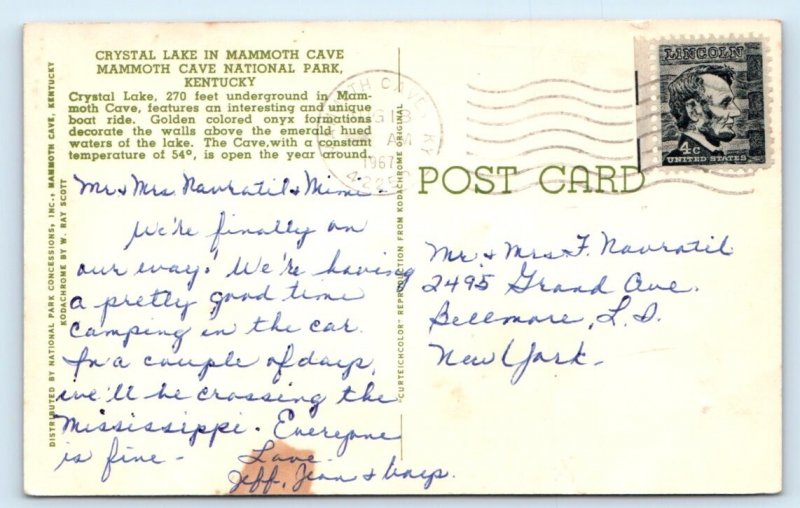 CRYSTAL LAKE IN MAMMOTH CAVE
MAMMOTH CAVE NATIONAL PARK,
KENTUCKY
Crystal Lake, 270 feet underground in Mam-
moth Cave, features an interesting and unique
boat ride. Golden colored onyx formations
decorate the walls above the emerald hued
waters of the lake. The Cave, with a constant
temperature of 54°, is open the year around.
DISTRIBUTED BY NATIONAL PARK CONCESSIONS, INC., MAMMOTH CAVE, KENTUCKY
KODACHROME BY W. RAY SCOTT
Mr & Mrs Navratil & Mimi
We're finally on
our way! We're having
a pretty good time
camping in the car.
In a couple of days,
we'll be crossing the
Mississippi. Everyone
is fine -
Love
Jeff, Jean &
"CURTEICHCOLOR" REPRODUCTION FROM KODACHROME ORIGINAL
MAMMOTH CAVE, KY
AM
1967
LINCOLN
4c
UNITED STATES
POST CARD
Mr. & Mrs F. Navratil
2495 Grand Ave.
Bellmore, L.I.
New York.